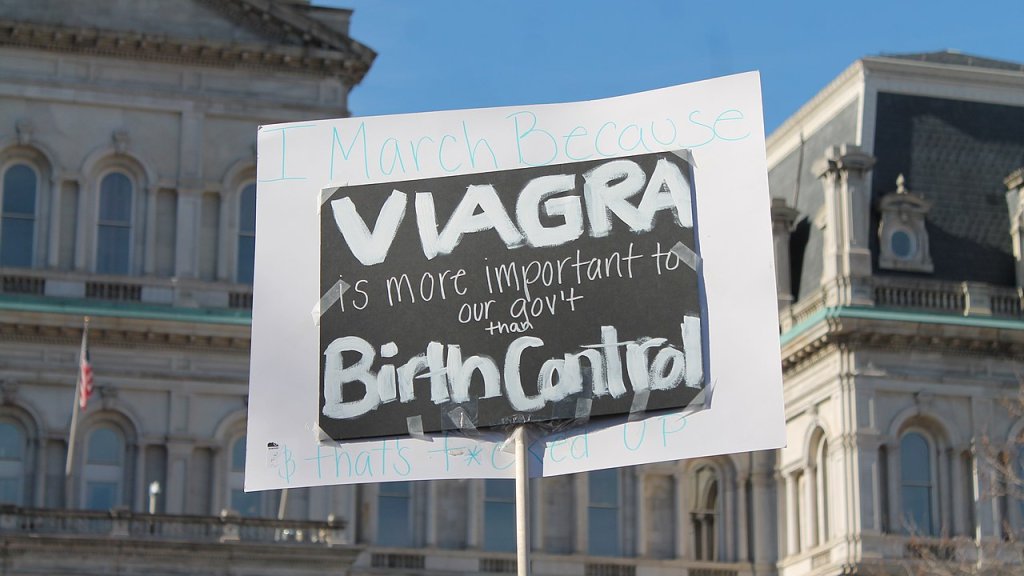 I March Because
VIAGRA
is more important to
our gov't
than
Birth Control
& thats f*cked UP